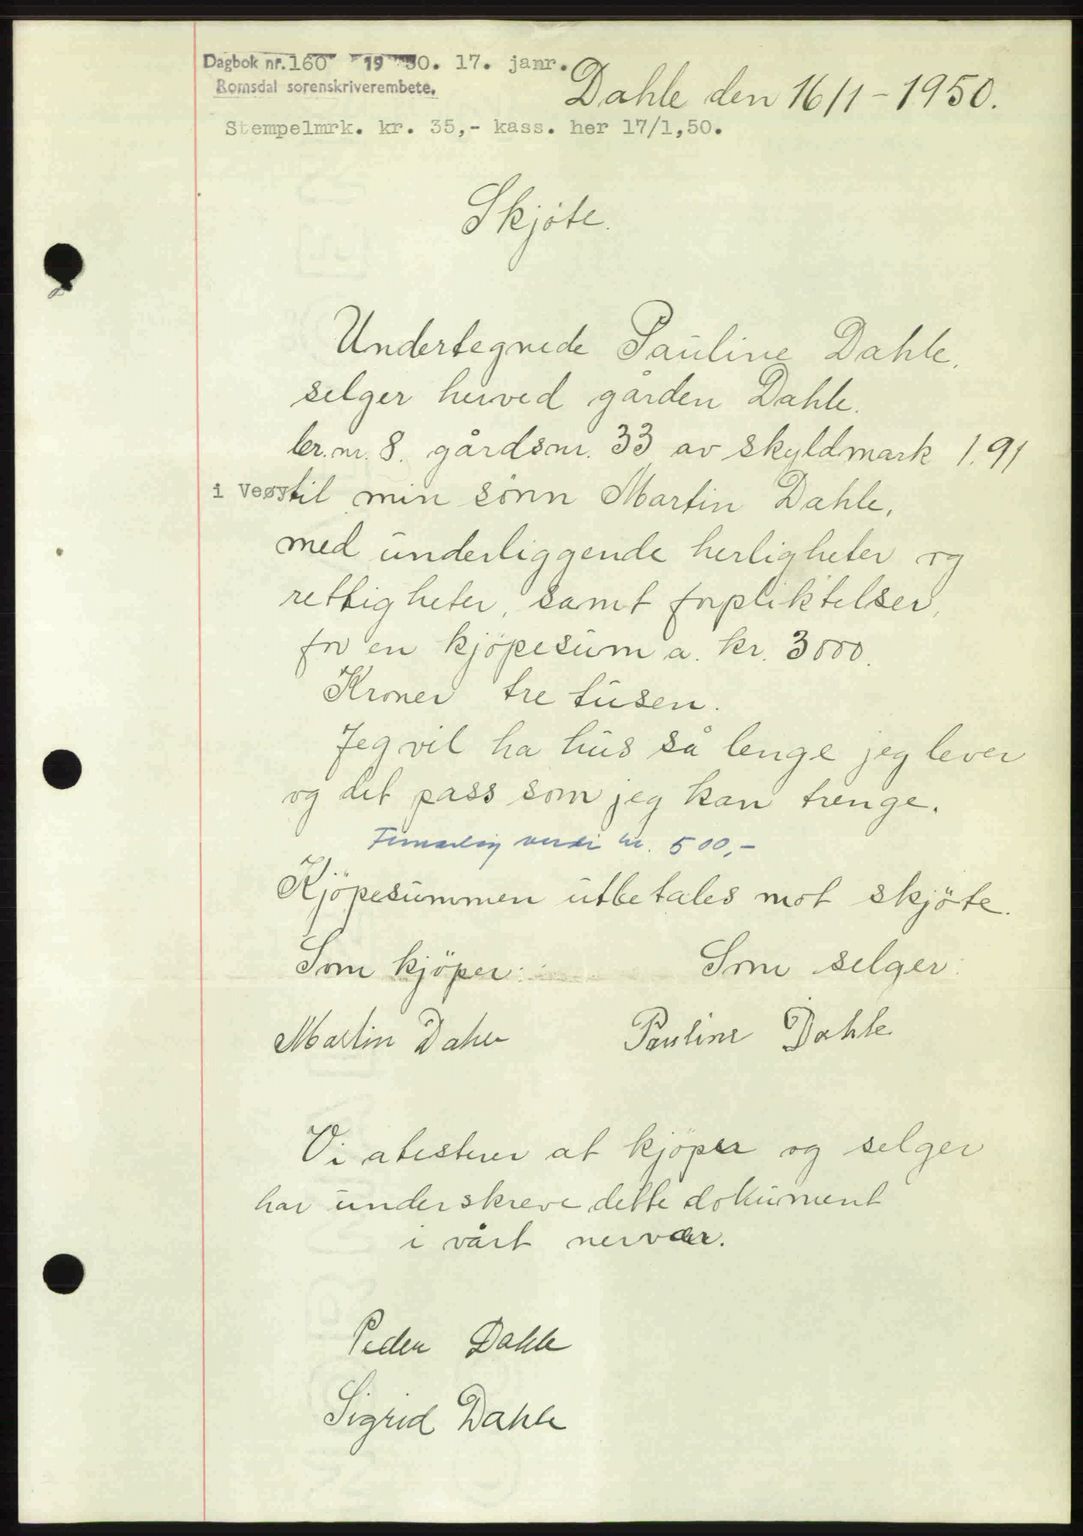 Dagbok nr. 160 1950. 17. janr.
Romsdal sorenskriverembete.
Dahle den 16/1 - 1950.
Stempelmrk. kr. 35,- kass. her 17/1,50.
Skjöte.
Undertegnede Pauline Dahle,
selger herved gården Dahle.
br.nr. 8. gårdsnr. 33 av skyldmark 1.91
i Veøy til min sönn Martin Dahle,
med underliggende herligheter og
rettigheter, samt forpliktelser,
for en kjöpesum a. kr. 3000.
Kroner tre tusen.
Jeg vil ha hus så lenge jeg lever
og det pass som jeg kan trenge.
Femårlig verdi kr. 500,-
Kjöpesummen utbetales mot skjöte.
Som kjöper: Som selger:
Martin Dahle Pauline Dahle
Vi atesterer at kjöper og selger
har underskreve dette dokument
i vårt nervær.
Peder Dahle
Sigrid Dahle